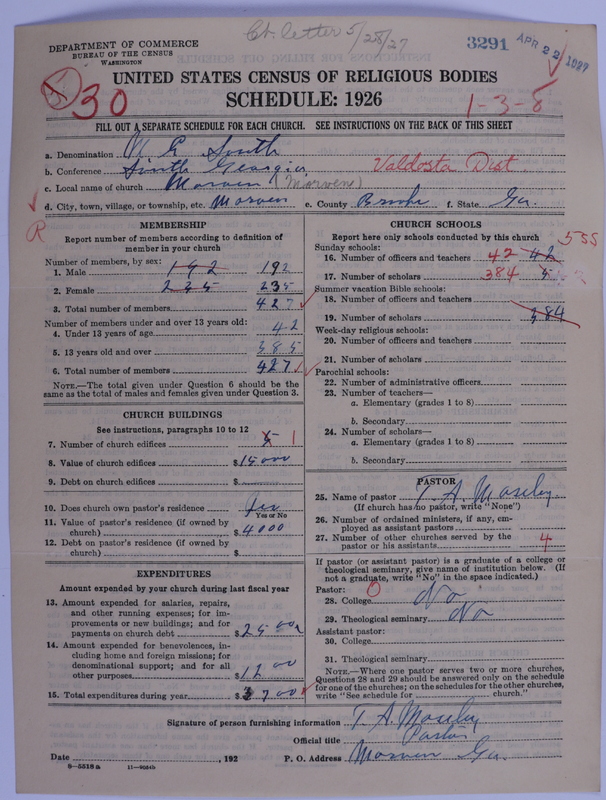 Ch. letter 5/28/27
DEPARTMENT OF COMMERCE
BUREAU OF THE CENSUS
WASHINGTON
3291 APR 22 1927
30
UNITED STATES CENSUS OF RELIGIOUS BODIES
SCHEDULE: 1926
1-3-8
FILL OUT A SEPARATE SCHEDULE FOR EACH CHURCH. SEE INSTRUCTIONS ON THE BACK OF THIS SHEET
a. Denomination M E South
b. Conference South Georgia Valdosta Dist.
c. Local name of church Morven (Morven)
d. City, town, village, or township, etc. Morven e. County Brooks f. State Ga.
R
MEMBERSHIP
Report number of members according to definition of
member in your church
Number of members, by sex:
1. Male 192 192
2. Female 235 235
3. Total number of members 427
Number of members under and over 13 years old:
4. Under 13 years of age 42
5. 13 years old and over 385
6. Total number of members 427
NOTE.—The total given under Question 6 should be the
same as the total of males and females given under Question 3.
CHURCH BUILDINGS
See instructions, paragraphs 10 to 12
7. Number of church edifices 5 1
8. Value of church edifices $15000
9. Debt on church edifices $
10. Does church own pastor's residence Yes
Yes or No
11. Value of pastor's residence (if owned by
church) $4000
12. Debt on pastor's residence (if owned by
church) $
EXPENDITURES
Amount expended by your church during last fiscal year
13. Amount expended for salaries, repairs,
and other running expenses; for im-
provements or new buildings; and for
payments on church debt $2500
14. Amount expended for benevolences, in-
cluding home and foreign missions; for
denominational support; and for all
other purposes $1200
15. Total expenditures during year $3700
CHURCH SCHOOLS
Report here only schools conducted by this church 555
Sunday schools:
16. Number of officers and teachers 42 42
17. Number of scholars 384
Summer vacation Bible schools:
18. Number of officers and teachers
19. Number of scholars 384
Week-day religious schools:
20. Number of officers and teachers
21. Number of scholars
Parochial schools:
22. Number of administrative officers
23. Number of teachers—
a. Elementary (grades 1 to 8)
b. Secondary
24. Number of scholars—
a. Elementary (grades 1 to 8)
b. Secondary
PASTOR
25. Name of pastor T. A. Moseley
(If church has no pastor, write "None")
26. Number of ordained ministers, if any, em-
ployed as assistant pastors
27. Number of other churches served by the
pastor or his assistants 4
If pastor (or assistant pastor) is a graduate of a college or
theological seminary, give name of institution below. (If
not a graduate, write "No" in the space indicated.)
Pastor: 0
28. College No
29. Theological seminary No
Assistant pastor:
30. College
31. Theological seminary
NOTE.—Where one pastor serves two or more churches,
Questions 28 and 29 should be answered only on the schedule
for one of the churches; on the schedules for the other churches,
write "See schedule for church."
Signature of person furnishing information T. A. Moseley
Official title Pastor
Date , 192 P. O. Address Morven Ga.
8-5518a 11-9034b